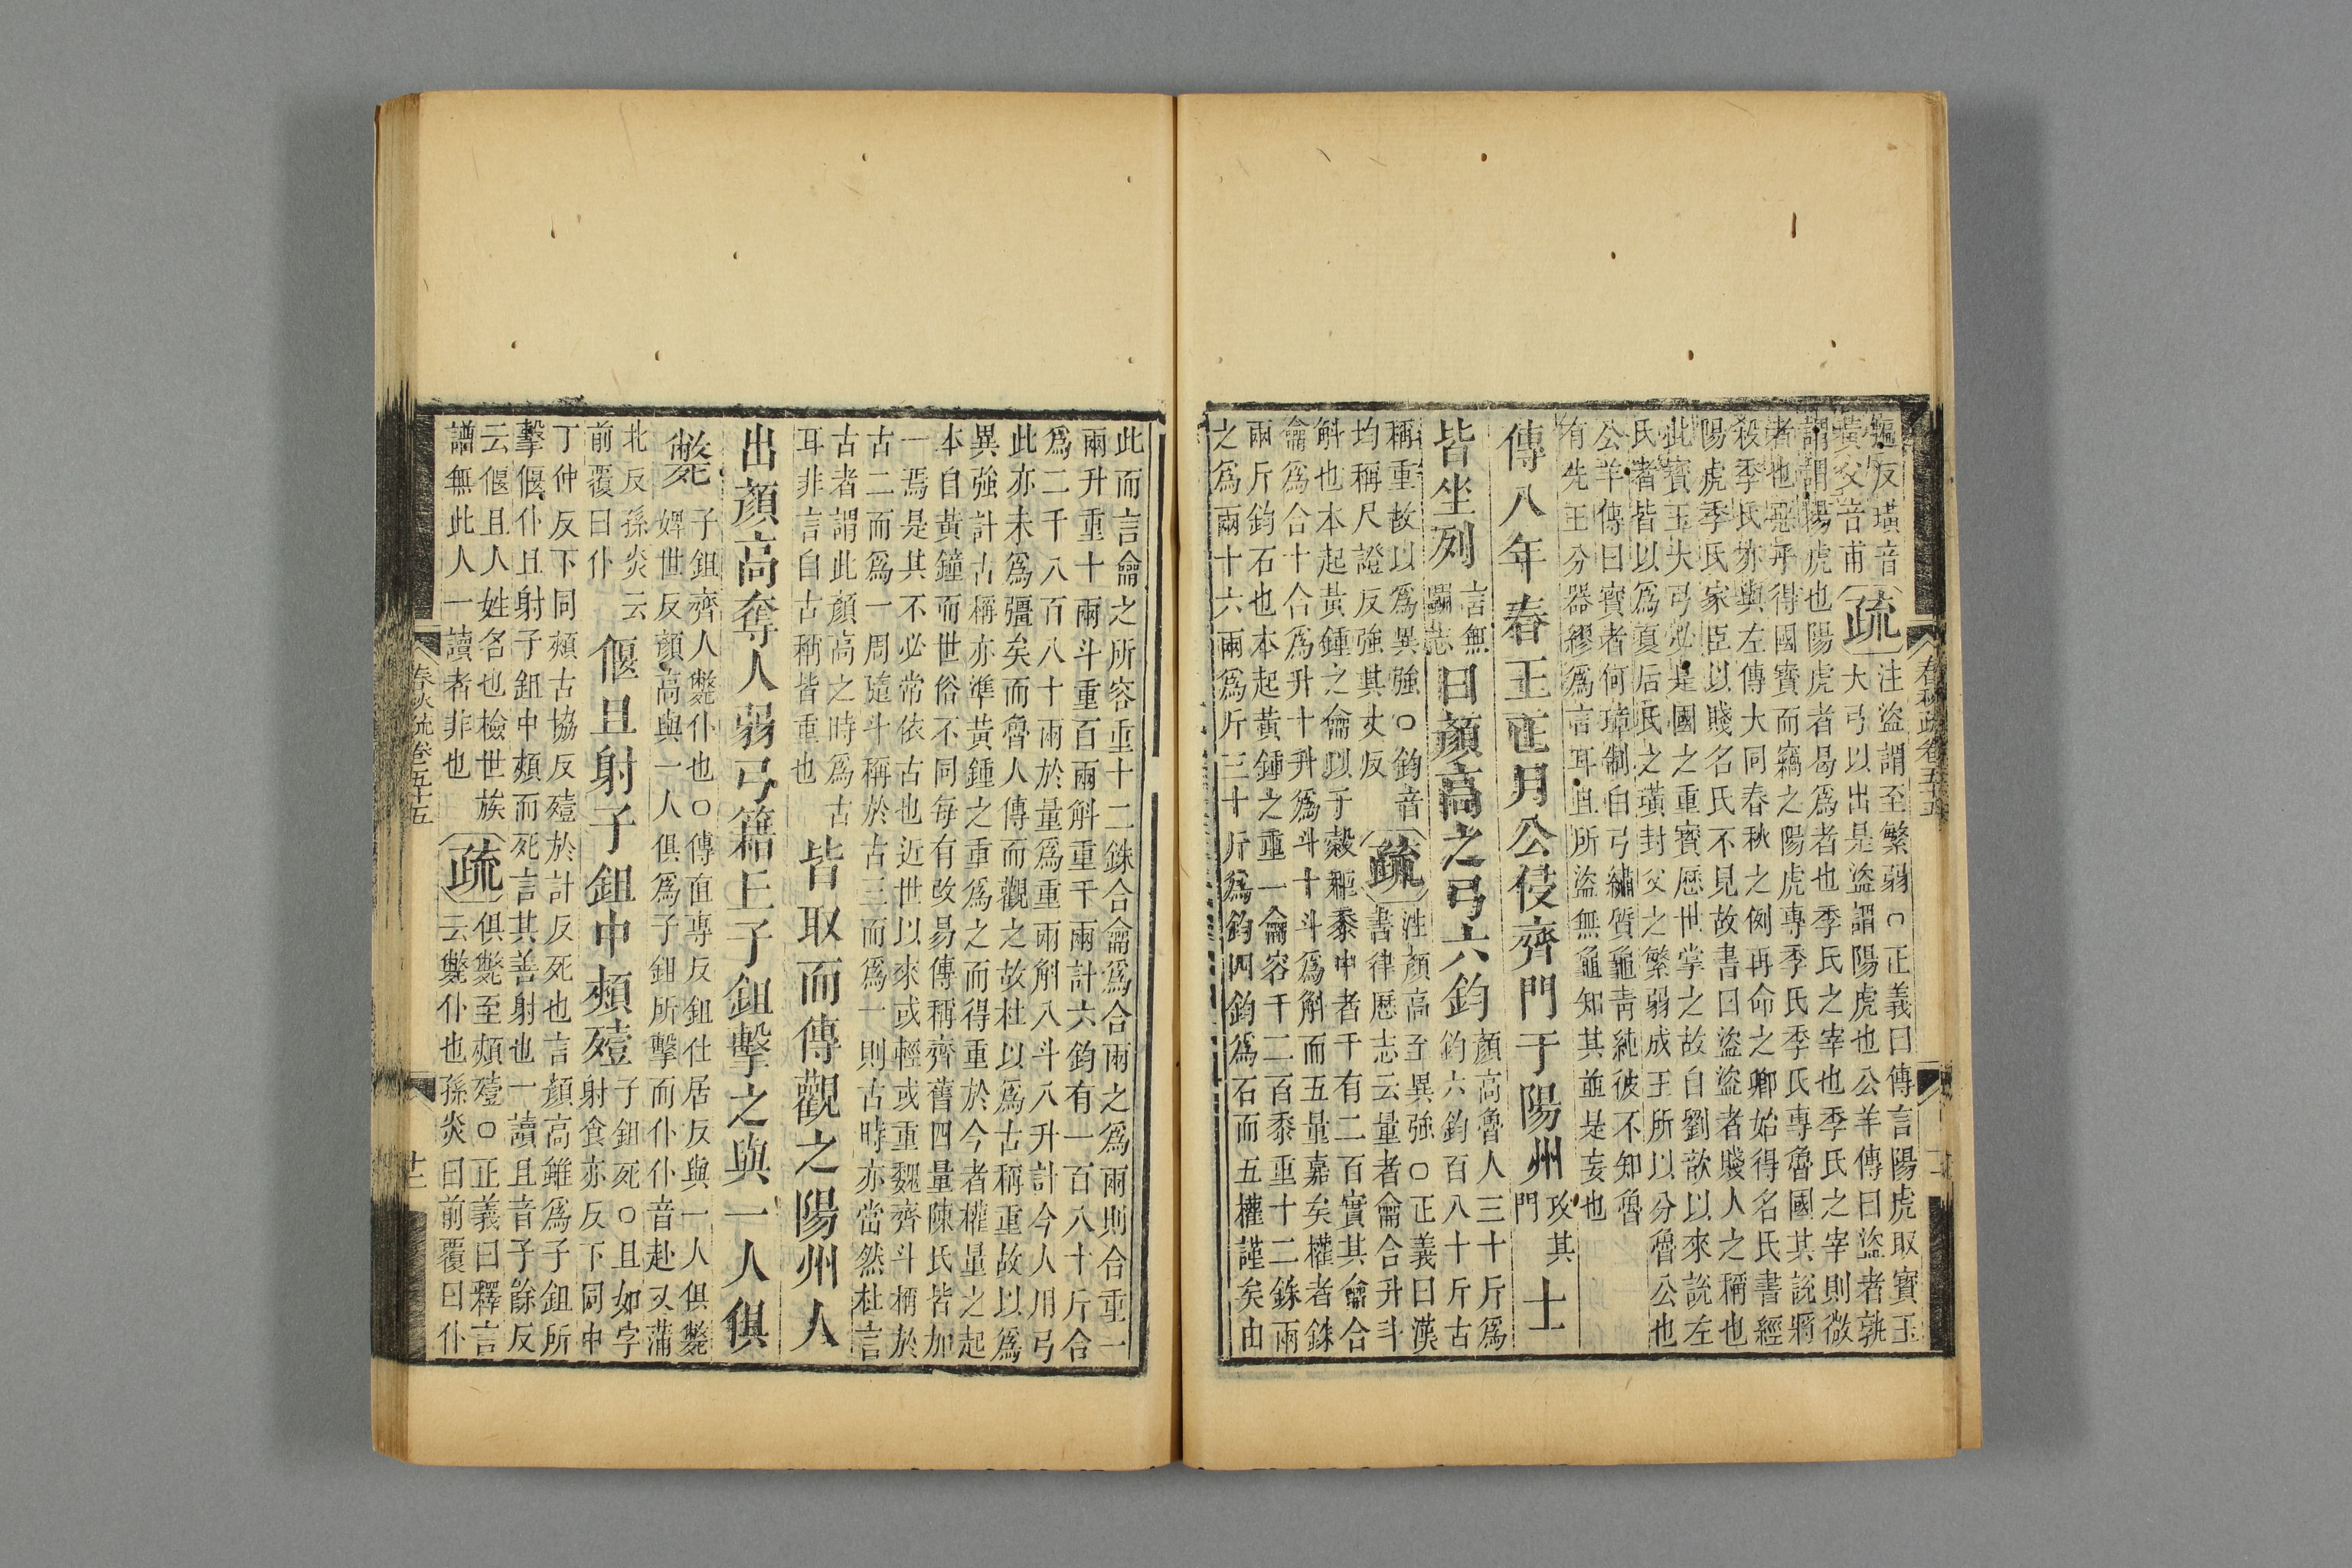 反璜音
黃父音甫
疏
注盜謂至繁弱○正義曰傳言陽虎取寶玉
大弓以出是盜謂陽虎也公羊傳曰盜者孰
謂謂陽虎也陽虎者曷爲者也季氏之宰也季氏之宰則微
者也惡乎得國寶而竊之陽虎專季氏季氏專魯國其說將
殺季氏亦與左傳大同春秋之例再命之卿始得名氏書經
陽虎季氏家臣以賤名氏不見故書曰盜盜者賤人之稱也
此寶玉大弓必是國之重寶歷世掌之故自劉歆以來說左
氏者皆以爲夏后氏之璜封父之繁弱成王所以分魯公也
公羊傳曰寶者何璋制白弓繡質龜青純彼不知魯
有先王分器繆爲言耳且所盜無龜知其並是妄也
傳八年春王正月公侵齊門于陽州
攻其
門
士
皆坐列
言無
鬭志
曰顏高之弓六鈞
顏高魯人三十斤爲
鈞六鈞百八十斤古
稱重故以爲異強○鈞音
均稱尺證反強其丈反
疏
注顏高至異強○正義曰漢
書律歷志云量者龠合升斗
斛也本起黃鍾之龠以子穀秬黍中者千有二百實其龠合
龠爲合十合爲升十升爲斗十斗爲斛而五量嘉矣權者銖
兩斤鈞石也本起黃鍾之重一龠容千二百黍重十二銖兩
之爲兩十六兩爲斤三十斤爲鈞四鈞爲石而五權謹矣由
春秋疏卷五十五
此而言龠之所容重十二銖合龠爲合兩之爲兩則合重一
兩升重十兩斗重百兩斛重千兩計六鈞有一百八十斤合
爲二千八百八十兩於量爲重兩斛八斗八升計今人用弓
此亦未爲彊矣而魯人傳而觀之故杜以爲古稱重故以爲
異強計古稱亦準黃鍾之重爲之而得重於今者權量之起
本自黃鐘而世俗不同每有改易傳稱齊舊四量陳氏皆加
一焉是其不必常依古也近世以來或輕或重魏齊斗稱於
古二而爲一周隨斗稱於古三而爲一則古時亦當然杜言
古者謂此顏高之時爲古
耳非言自古稱皆重也
皆取而傳觀之陽州人
出顏高奪人弱弓籍丘子鉏擊之與一人俱
斃
子鉏齊人斃仆也○傳直專反鉏仕居反與一人俱斃
婢世反顏高與一人俱爲子鉏所擊而仆仆音赴又蒲
北反孫炎云
前覆曰仆
偃且射子鉏中頰殪
子鉏死○且如字
射食亦反下同中
丁仲反下同頰古協反殪於計反死也言顏高雖爲子鉏所
擊偃仆且射子鉏中頰而死言其善射也一讀且音子餘反
云偃且人姓名也檢世族
譜無此人一讀者非也
疏
俱斃至頰殪○正義曰釋言
云斃仆也孫炎曰前覆曰仆
春秋疏卷五十五
十二